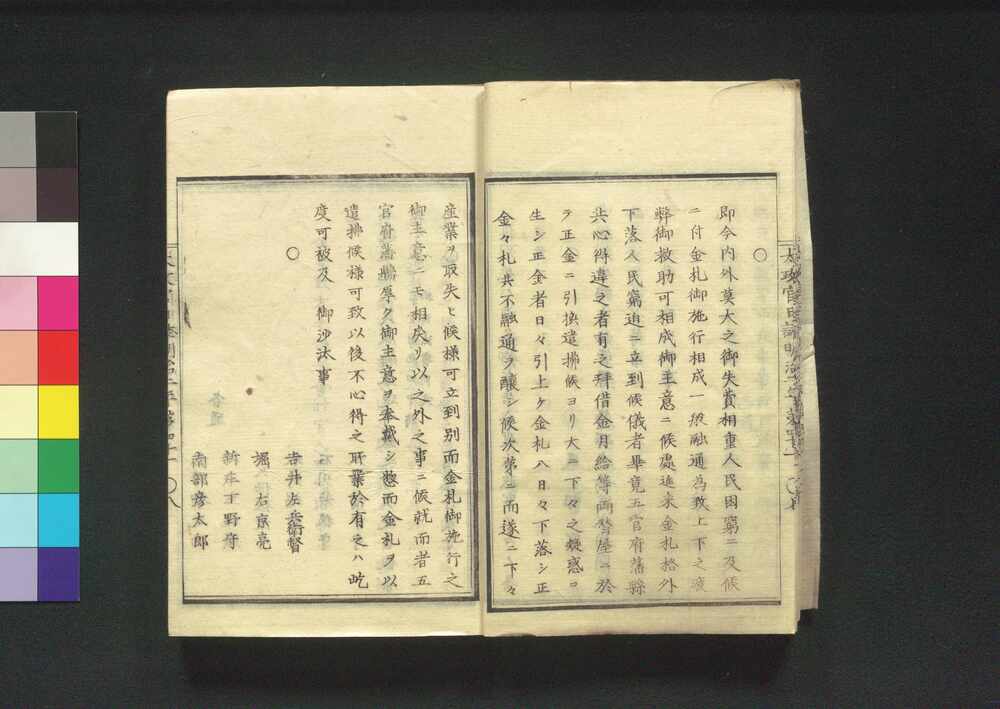 ○
即今内外莫大之御失費相重人民困窮ニ及候
ニ付金札御施行相成一般融通為致上下之疲
弊御救助可相成御主意ニ候處近来金札格外
下落人民窮迫ニ立到候儀者畢竟五官府藩縣
共心得違之者有之拜借金月給等両替屋ニ於
テ正金ニ引換遣拂候ヨリ大ニ下々之疑惑ヲ
生シ正金者日々引上ケ金札ハ日々下落シ正
金々札共不融通ヲ醸シ候次第ニ而遂ニ下々
産業ヲ取失ヒ候様可立到別而金札御施行之
御主意ニモ相戻リ以之外之事ニ候就而者五
官府藩縣厚ク御主意ヲ奉戴シ惣而金札ヲ以
遣拂候様可致以後不心得之所業於有之ハ屹
度可被及 御沙汰事
○
吉井左兵衛督
堀右京亮
新庄下野守
南部彦太郎